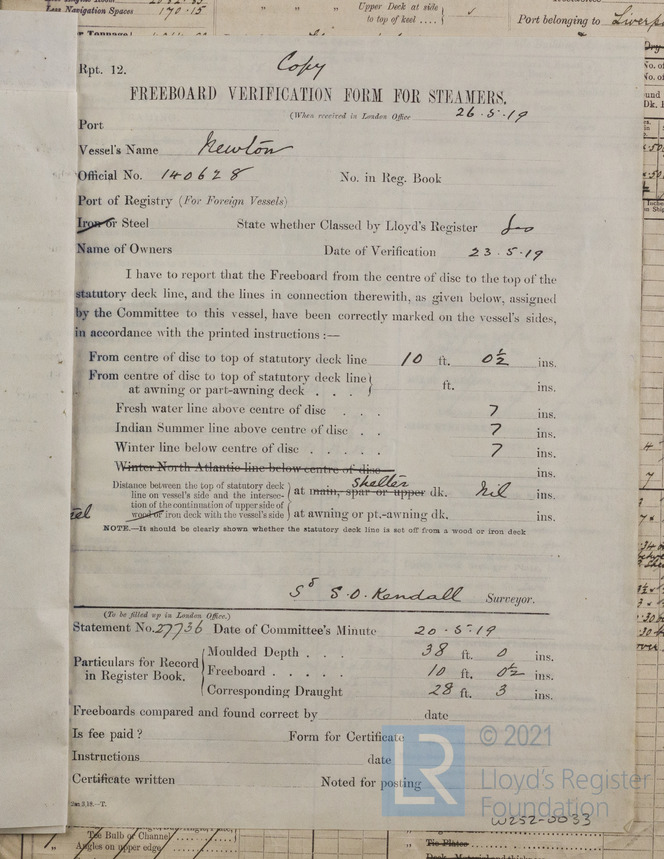 Less Navigation Spaces 170.15
Upper Deck at side
to top of keel ....
Port belonging to Liverp
Rpt. 12. Copy
FREEBOARD VERIFICATION FORM FOR STEAMERS.
(When received in London Office 26.5.19
Port
Vessel's Name Newton
Official No. 140628 No. in Reg. Book
Port of Registry (For Foreign Vessels)
Iron or Steel State whether Classed by Lloyd's Register Yes
Name of Owners Date of Verification 23.5.19
I have to report that the Freeboard from the centre of disc to the top of the
statutory deck line, and the lines in connection therewith, as given below, assigned
by the Committee to this vessel, have been correctly marked on the vessel's sides,
in accordance with the printed instructions :—
From centre of disc to top of statutory deck line 10 ft. 0½ ins.
From centre of disc to top of statutory deck line
at awning or part-awning deck . . . ft. ins.
Fresh water line above centre of disc . . . 7 ins.
Indian Summer line above centre of disc . . 7 ins.
Winter line below centre of disc . . . . . 7 ins.
Winter North Atlantic line below centre of disc ins.
Distance between the top of statutory deck
line on vessel's side and the intersec-
tion of the continuation of upper side of
wood or iron deck with the vessel's side
shelter
at main, spar or upper dk. Nil ins.
at awning or pt.-awning dk. ins.
NOTE.—It should be clearly shown whether the statutory deck line is set off from a wood or iron deck
Sd S.O. Kendall Surveyor.
(To be filled up in London Office.)
Statement No. 27736 Date of Committee's Minute 20.5.19
Particulars for Record
in Register Book.
Moulded Depth . . . 38 ft. 0 ins.
Freeboard . . . . . 10 ft. 0½ ins.
Corresponding Draught 28 ft. 3 ins.
Freeboards compared and found correct by date
Is fee paid? Form for Certificate
Instructions date
Certificate written Noted for posting
2m,9,18.—T.
LR
© 2021
Lloyd's Register
Foundation
W252-0033
The Bulb or Channel
Angles on upper edge
Tie Plates